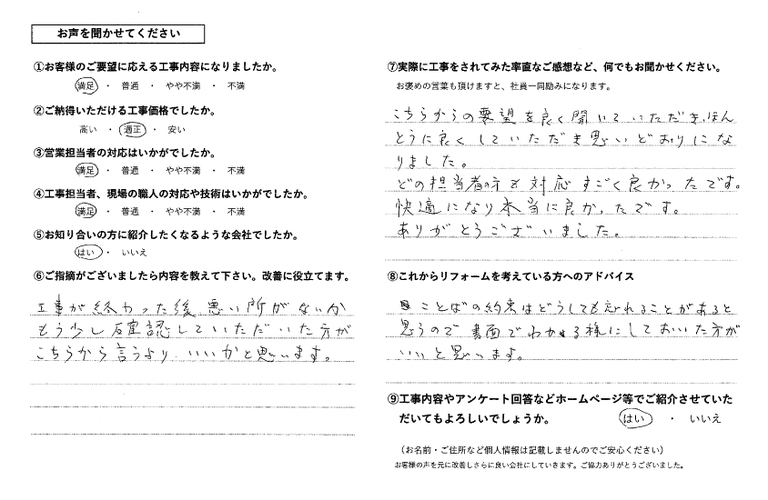 お声を聞かせてください
①お客様のご要望に応える工事内容になりましたか。
満足 ・ 普通 ・ やや不満 ・ 不満
②ご納得いただける工事価格でしたか。
高い ・ 適正 ・ 安い
③営業担当者の対応はいかがでしたか。
満足 ・ 普通 ・ やや不満 ・ 不満
④工事担当者、現場の職人の対応や技術はいかがでしたか。
満足 ・ 普通 ・ やや不満 ・ 不満
⑤お知り合いの方に紹介したくなるような会社でしたか。
はい ・ いいえ
⑥ご指摘がございましたら内容を教えて下さい。改善に役立てます。
工事が終わった後、悪い所がないか
もう少し確認していただいた方が
こちらから言うより いいかと思います。
⑦実際に工事をされてみた率直なご感想など、何でもお聞かせください。
お褒めの言葉も頂けますと、社員一同励みになります。
こちらからの要望を良く聞いていただき、ほん
とうに良くしていただき思いどおりにな
りました。
どの担当者の方も対応すごく良かったです。
快適になり本当に良かったです。
ありがとうございました。
⑧これからリフォームを考えている方へのアドバイス
ことばの約束はどうしても忘れることがあると
思うので書面でわかる様にしておいた方が
いいと思います。
⑨工事内容やアンケート回答などホームページ等でご紹介させていた
だいてもよろしいでしょうか。 はい ・ いいえ
（お名前・ご住所など個人情報は記載しませんのでご安心ください）
お客様の声を元に改善しさらに良い会社にしていきます。ご協力ありがとうございました。